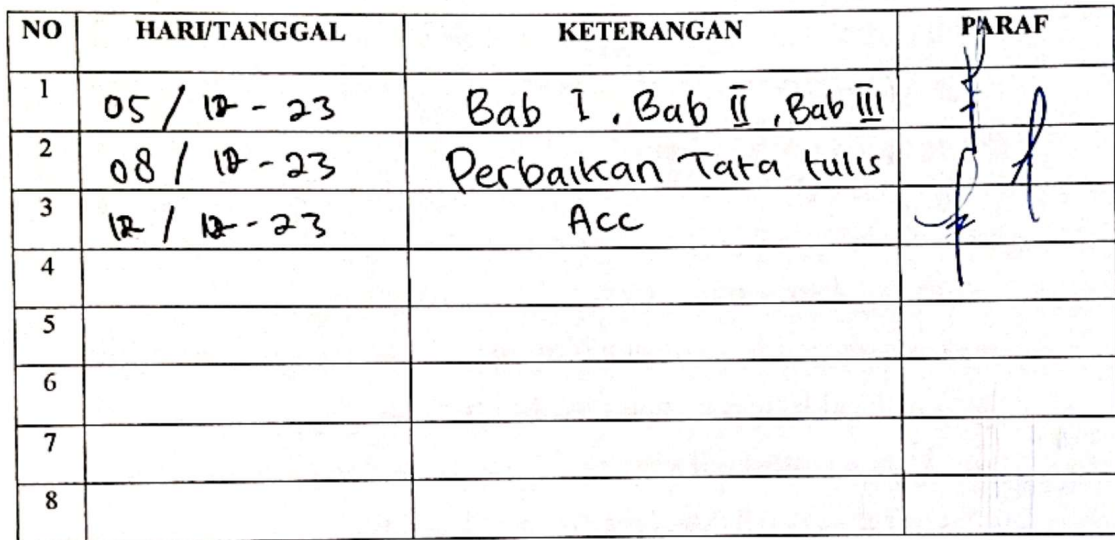 NO HARI/TANGGAL KETERANGAN PARAF
1 05 / 12 - 23 Bab I , Bab II , Bab III
2 08 / 12 - 23 Perbaikan Tata tulis
3 12 / 12 - 23 Acc
4
5
6
7
8